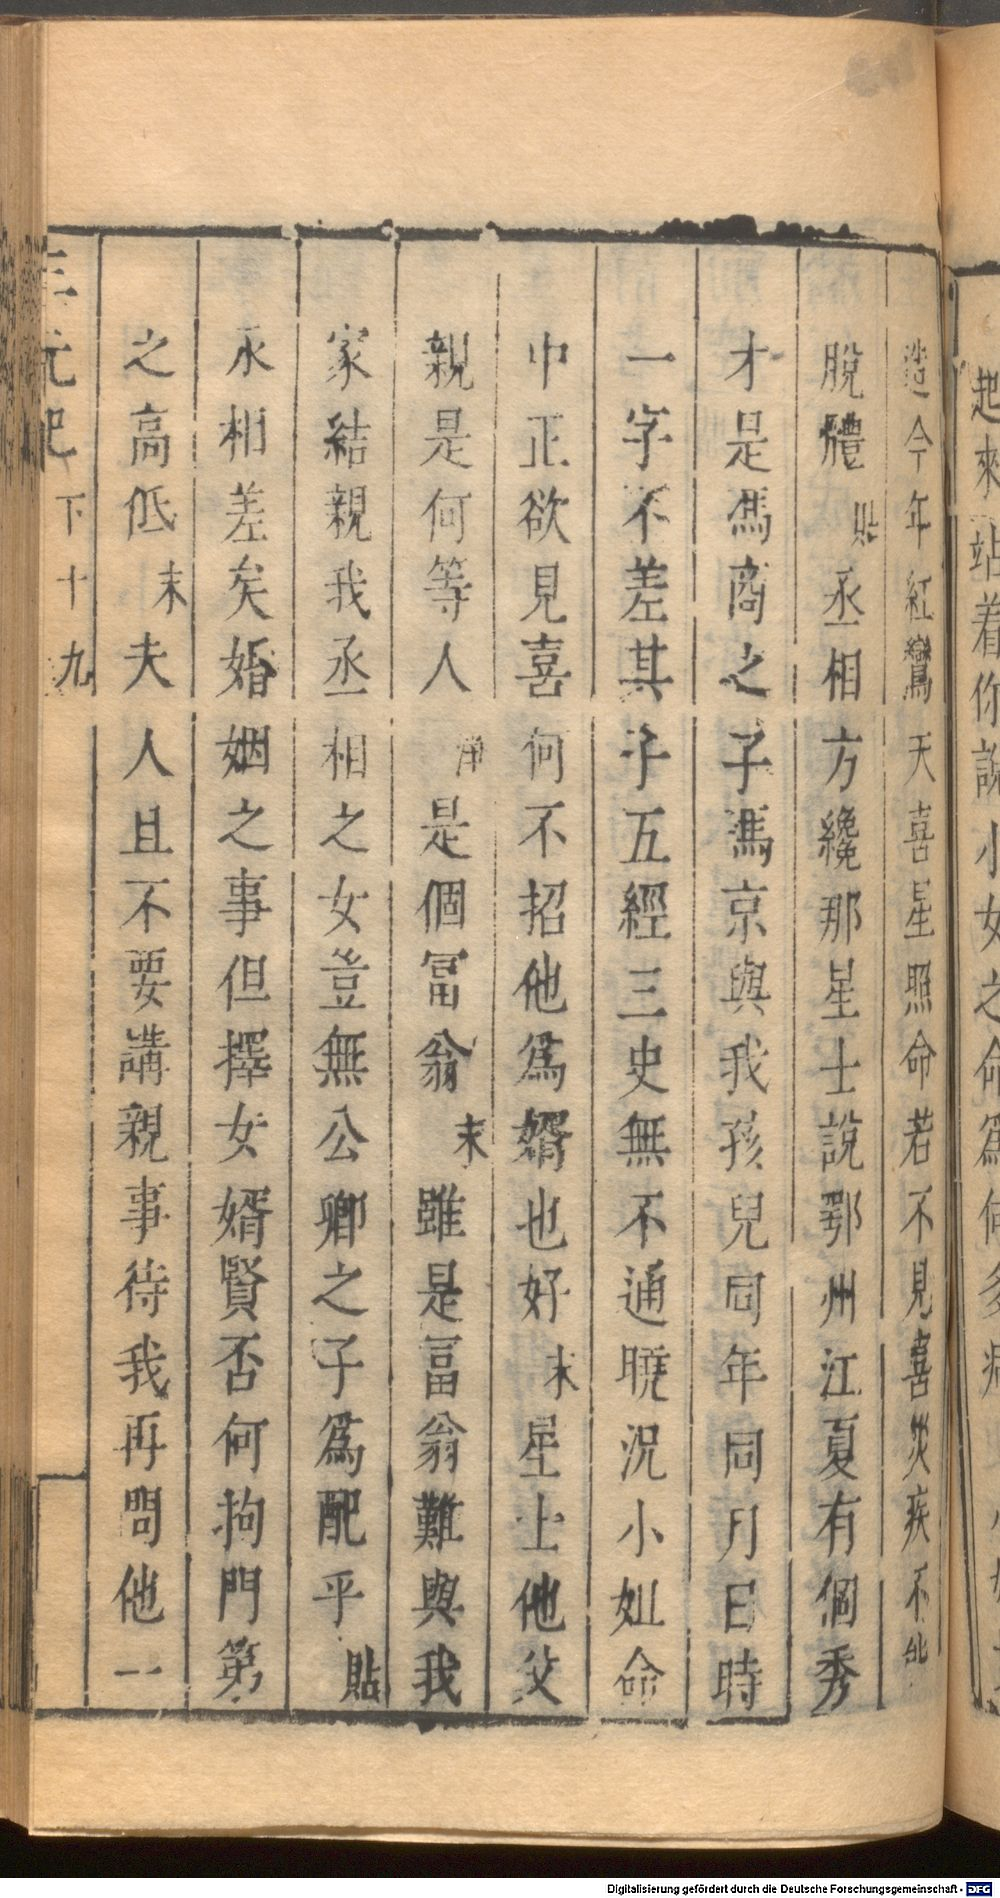 造今年紅鸞天喜星照命若不見喜災疾不能
脫體貼丞相方纔那星士說鄂州江夏有個秀
才是馮商之子馮京與我孩兒同年同月日時
一字不差其子五經三史無不通曉況小姐命
中正欲見喜何不招他爲婿也好末星士他父
親是何等人淨是個冨翁末雖是冨翁難與我
家結親我丞相之女豈無公卿之子爲配乎貼
永相差矣婚姻之事但擇女婿賢否何拘門第
之高低末夫人且不要講親事待我再問他一
三元記 下 十九
起來站着你說小女之命爲何多病
Digitalisierung gefördert durch die Deutsche Forschungsgemeinschaft - DFG